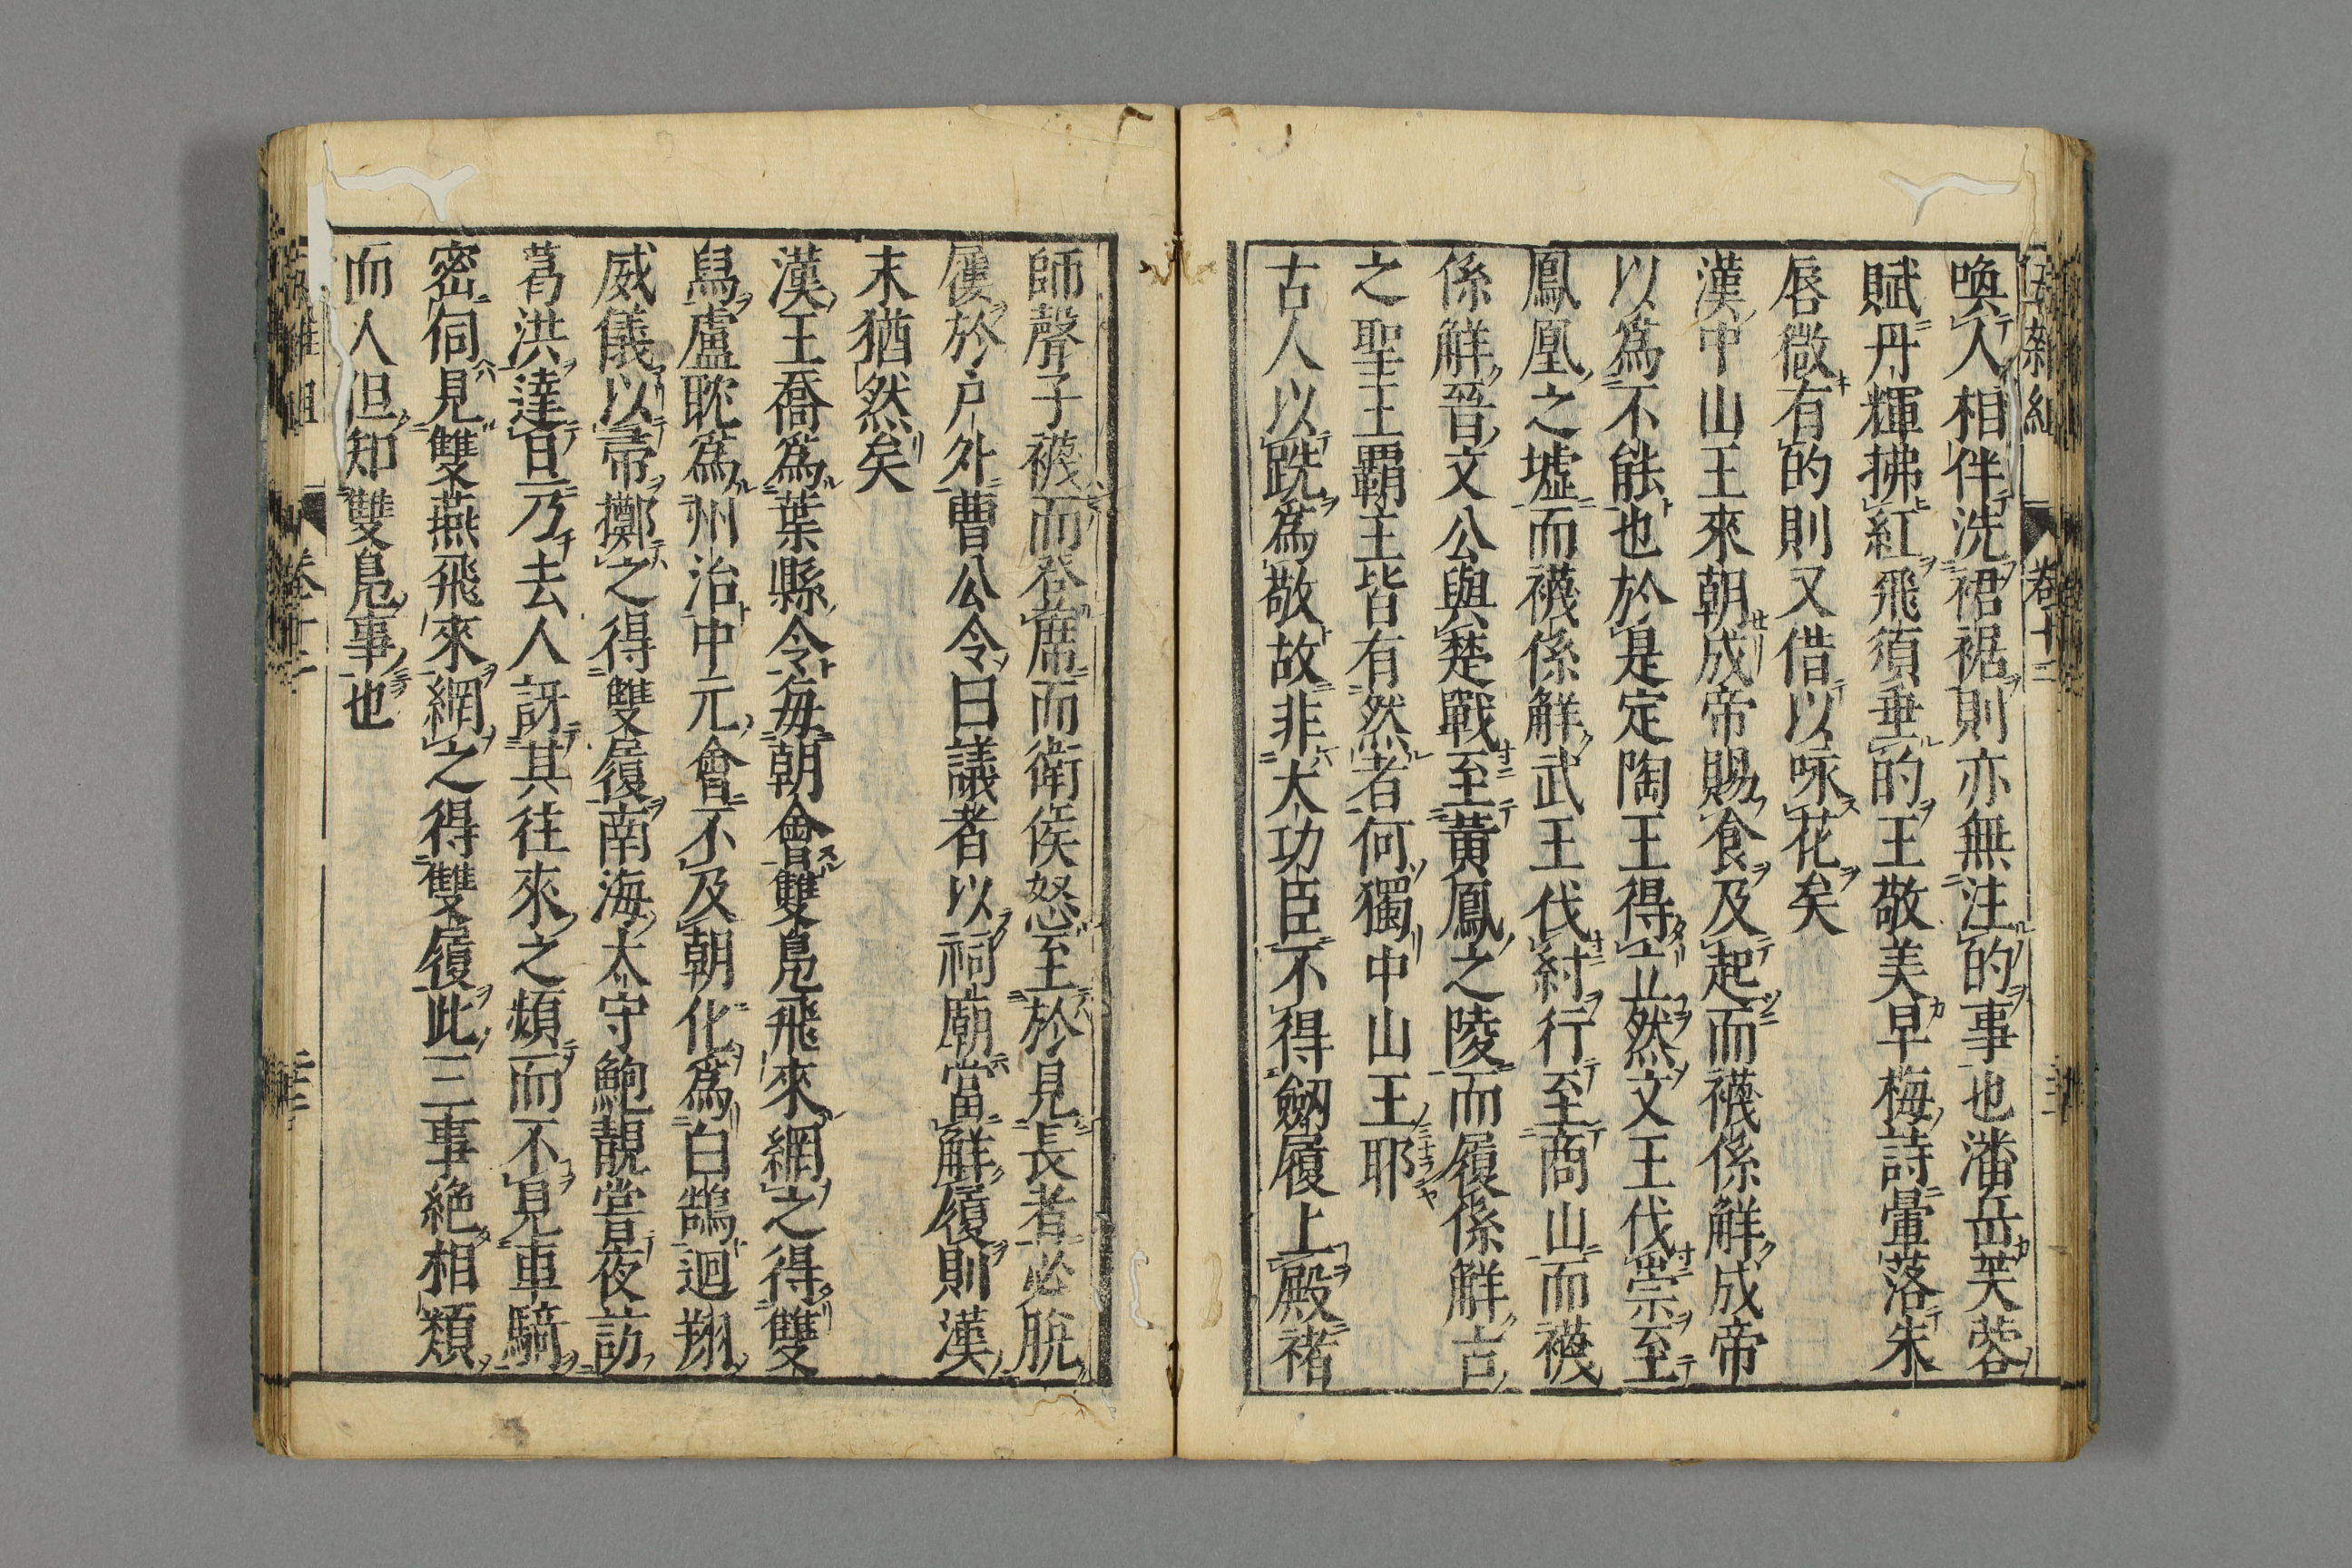 喚人相伴洗裙裾則亦無注的事也潘岳芙蓉
賦丹輝拂紅飛須垂的王敬美早梅詩暈落朱
唇微有的則又借以咏花矣
漢中山王來朝成帝賜食及起而襪係解成帝
以爲不能也於是定陶王得立然文王伐崇至
鳳凰之墟而襪係解武王伐紂行至商山而襪
係解晉文公與楚戰至黃鳳之陵而履係解古
之聖王霸主皆有然者何獨中山王耶
古人以跣爲敬故非大功臣不得劔履上殿褚
師聲子襪而登席而衛侯怒至於見長者必脫
屨於戶外曹公令曰議者以祠廟當解履則漢
末猶然矣
漢王喬爲葉縣令每朝會雙鳧飛來網之得雙
舄盧耽爲州治中元會不及朝化爲白鵠迴翔
威儀以帚擲之得雙履南海太守鮑靚嘗夜訪
葛洪達旦乃去人訝其往來之頻而不見車騎
密伺見雙燕飛來網之得雙履此三事絶相類
而人但知雙鳧事也
卷十二